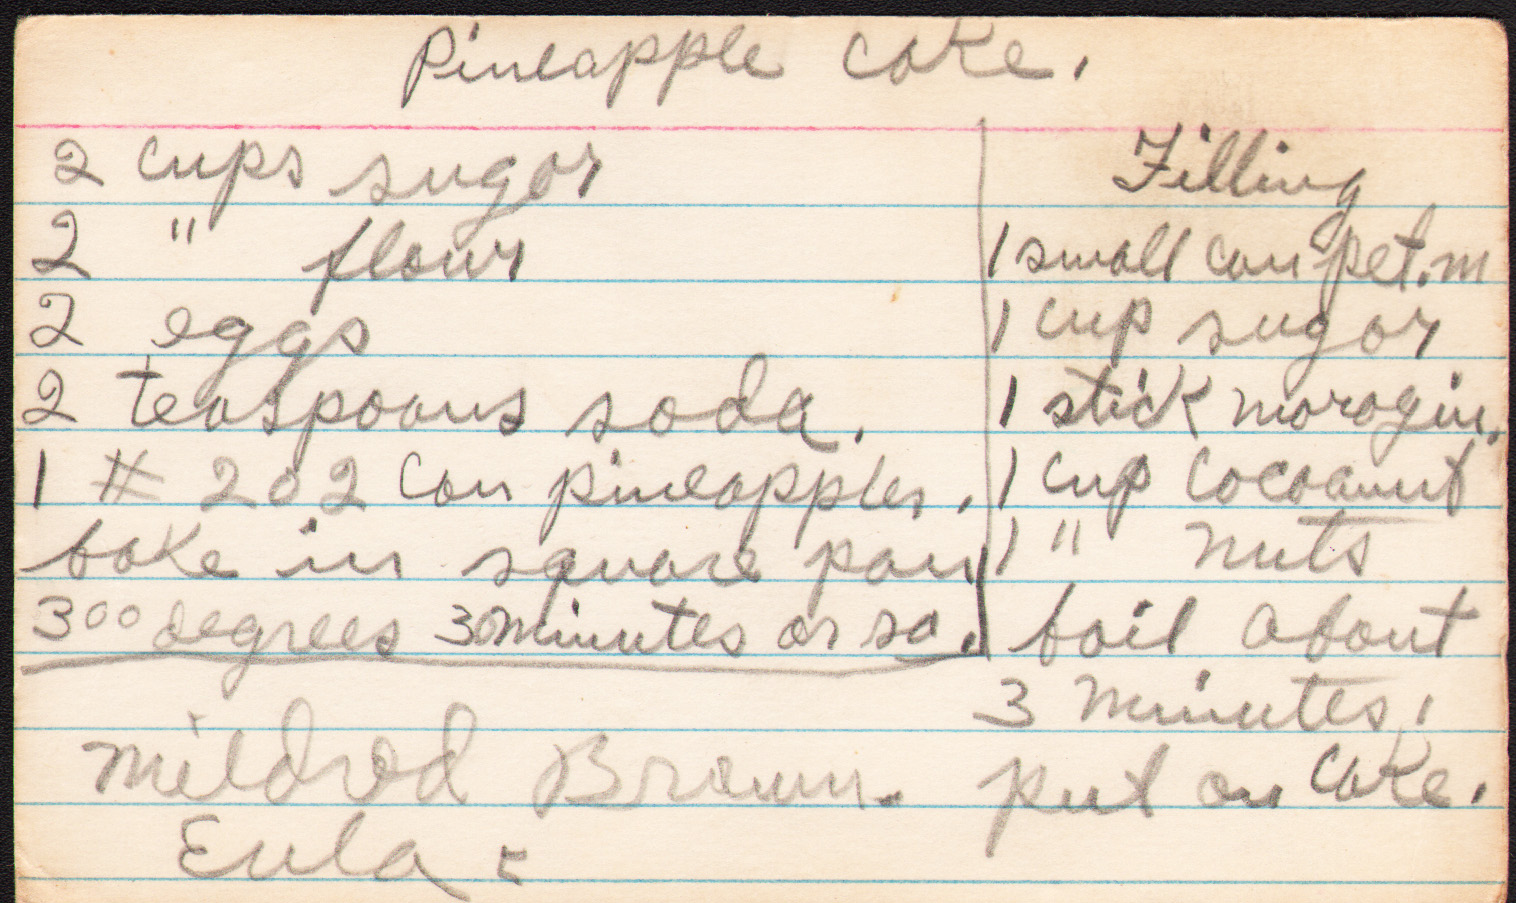 Pineapple Cake.
2 cups sugar
2 " flour
2 eggs
2 teaspoons soda.
1 # 202 can pineapples.
bake in square pan
300 degrees 30 minutes or so.
Mildred Brown.
Eula
Filling
1 small can pet. m
1 cup sugar
1 stick marogin.
1 cup cocoanut
1 " nuts
boil about
3 minutes,
put on cake.